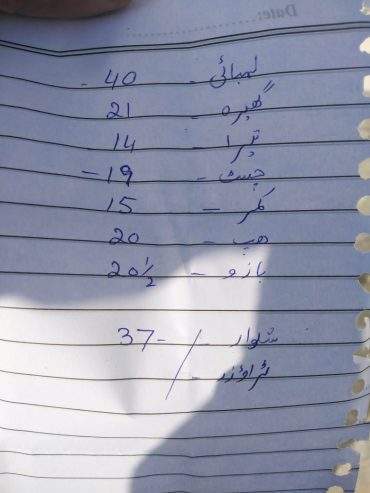 Date:
لمبائی - 40 -
گھیرہ - 21
تیرا - 14
چیسٹ - 19 -
کمر - 15
ہپ - 20
بازو - 20½
شلوار - / 37 -
ٹراؤزر - /